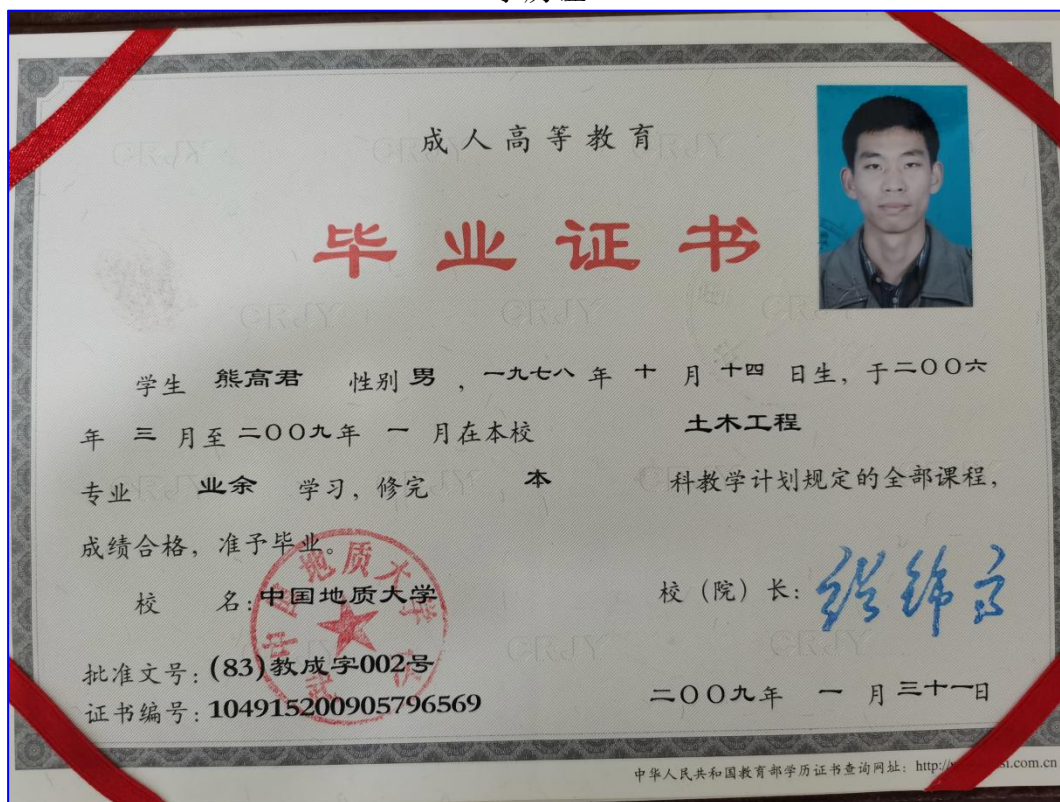 成人高等教育
毕业证书
学生 熊高君 性别 男 ，一九七八 年 十 月 十四 日生，于二〇〇六
年 三 月至 二〇〇九年 一 月在本校 土木工程
专业 业余 学习，修完 本 科教学计划规定的全部课程，
成绩合格，准予毕业。
校 名：中国地质大学
校（院）长：
批准文号：(83)教成字002号
证书编号：104915200905796569
二〇〇九年 一 月 三十一日
中华人民共和国教育部学历证书查询网址：http://
si.com.cn
CRJY